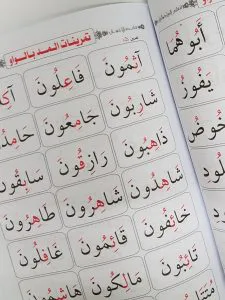 أَبُوهُمَا
يَفُورُ
خُوضُ
تمرينات المد بالواو
آثِمُونَ فَاعِلُونَ
شَارِبُونَ جَامِعُونَ حَامِدُ
ذَاهِبُونَ رَازِقُونَ سَابِقُونَ
شَاهِدُونَ شَاهِرُونَ طَاهِرُونَ
خَائِفُونَ قَائِمُونَ غَافِلُونَ
تَائِبُونَ مَالِكُونَ هَاشِمُونَ